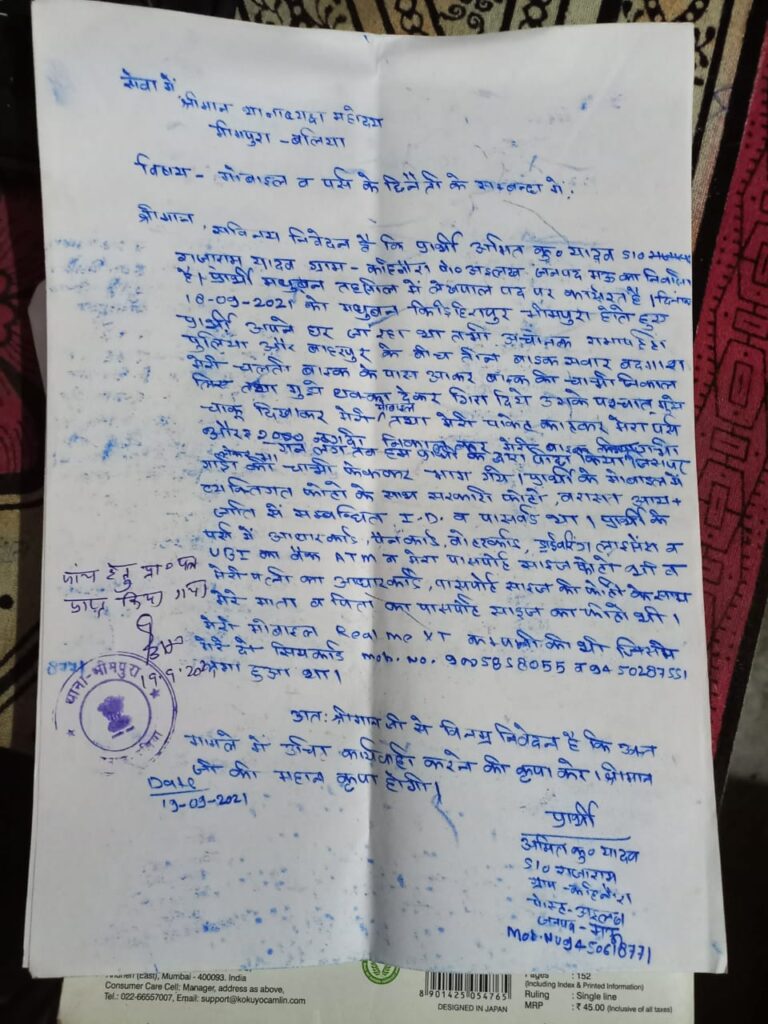 सेवा में
श्रीमान थानाध्यक्ष महोदय
भीमपुरा - बलिया
विषय - मोबाइल व पर्स के छिनैती के सम्बन्ध में.
श्रीमान, सविनय निवेदन है कि प्रार्थी अमित कु० यादव S/O
राजाराम यादव ग्राम - कहिनौरा पो० अदलख जनपद मऊ का निवासी
है। प्रार्थी मधुबन तहसील में लेखपाल पद पर कार्यरत है। दिनांक
18-09-2021 को मधुबन - किड़िहरापुर - भीमपुरा होते हुए
प्रार्थी अपने घर जा रहा था तभी अचानक
पुलिया और बाहरपुर के बीच तीन बाइक सवार बदमाश
मेरी चलती बाइक के पास आकर बाइक की चाभी निकाल
लिए तथा मुझे धक्का देकर गिरा दिये उसके पश्चात् मुझे
चाकू दिखाकर मेरी मोबाइल तथा मेरी पॉकेट काटकर मेरा पर्स
और 2000 नगदी निकाल कर मेरी बाइक
जाने लगे तब हम
गाड़ी की चाभी फेंककर भाग गये। प्रार्थी के मोबाइल में
व्यक्तिगत फोटो के साथ सरकारी फोटो, वरासत आय +
जाति से सम्बन्धित I.D. व पासवर्ड था। प्रार्थी के
पर्स में आधार कार्ड, पैन कार्ड, वोटर कार्ड, ड्राइविंग लाइसेंस व
UBI का बैंक ATM व मेरा पासपोर्ट साइज फोटो थी व
मेरी पत्नी का आधार कार्ड, पासपोर्ट साइज की फोटो के साथ
मेरे माता व पिता का पासपोर्ट साइज का फोटो थी।
मेरी मोबाइल Realme XT कम्पनी की थी जिसमें
मेरे दो सिमकार्ड Mob. No. 9005858055 व 9450287551
लगा हुआ था।
जांच हेतु प्रा० पत्र
प्राप्त किया गया
19.9.2021
थाना - भीमपुरा
अतः श्रीमान जी से विनम्र निवेदन है कि उक्त
मामले में उचित कार्यवाही करने की कृपा करें। श्रीमान
जी की महान कृपा होगी।
Date
19-09-2021
प्रार्थी
अमित कु० यादव
S/O राजाराम
ग्राम - कहिनौरा
पोस्ट - अदलख
जनपद - मऊ
Mob. No 9450618771
(East), Mumbai - 400093. India
Consumer Care Cell: Manager, address as above,
Tel.: 022-66557007, Email: support@kokuyocamlin.com
8 901425 054765
DESIGNED IN JAPAN
Pages : 152
(Including Index & Printed Information)
Ruling : Single line
MRP : ₹ 45.00 (Inclusive of all taxes)